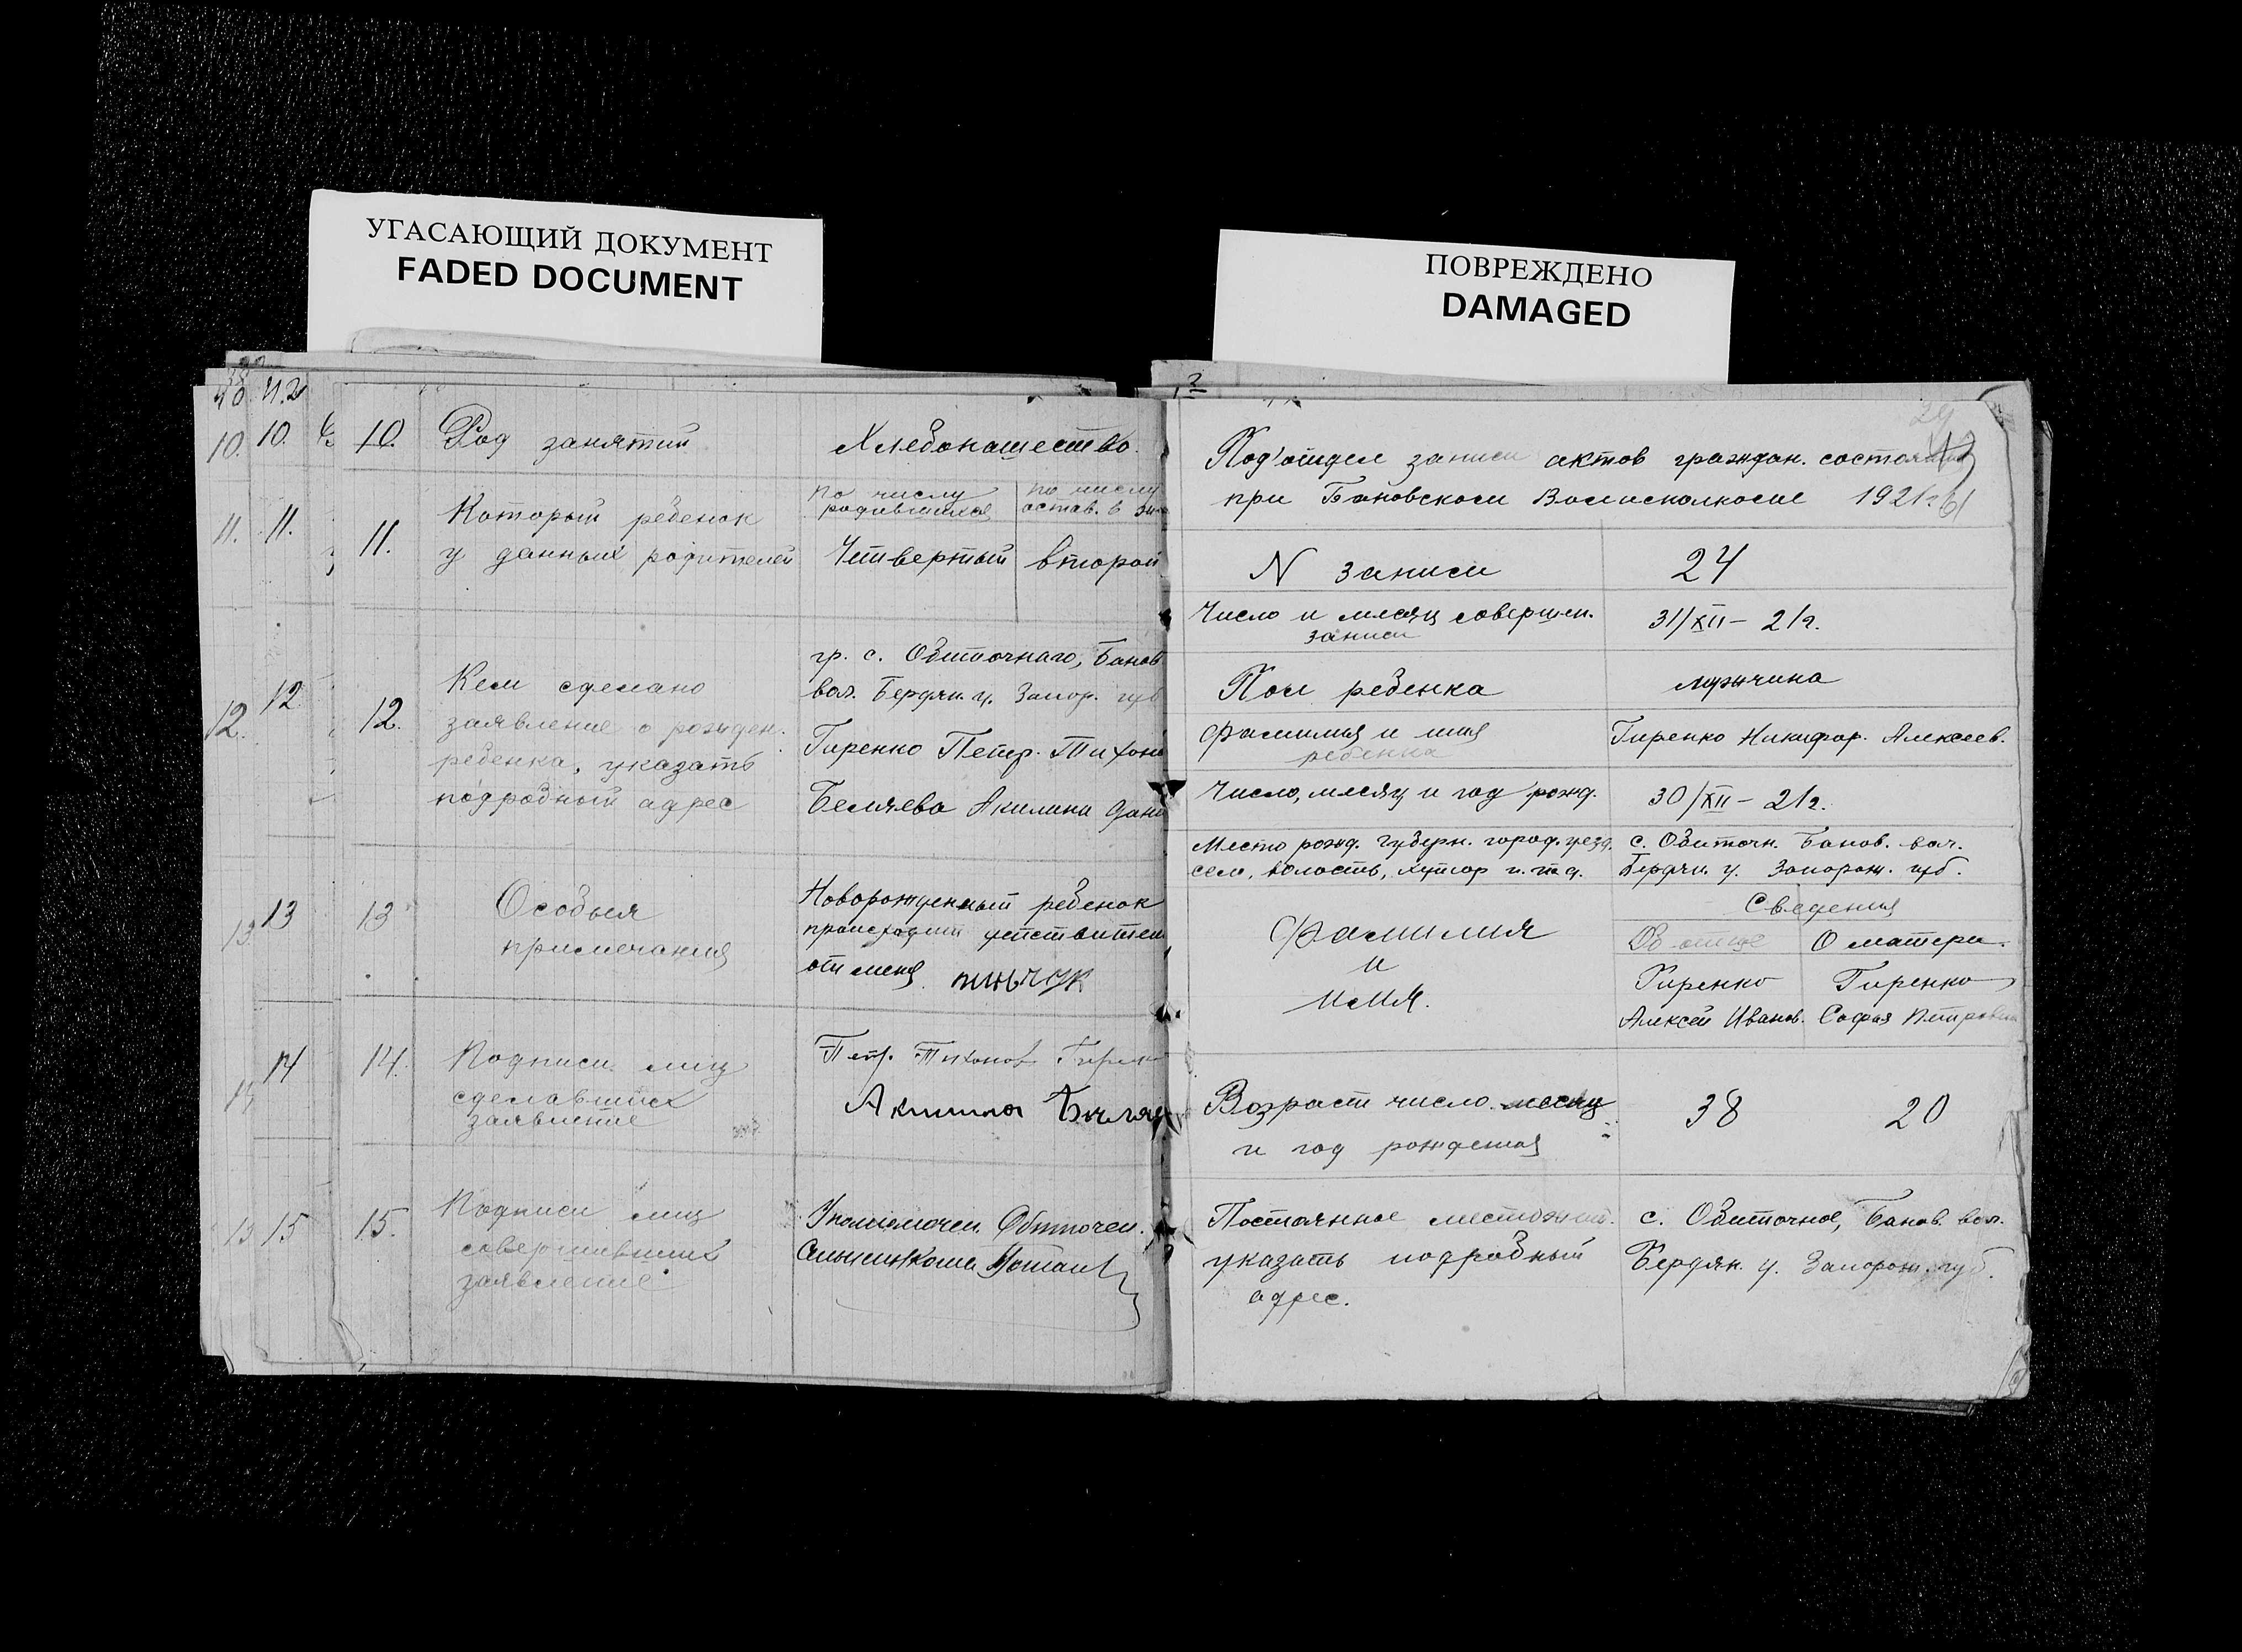 УГАСАЮЩИЙ ДОКУМЕНТ
FADED DOCUMENT
ПОВРЕЖДЕНО
DAMAGED
10. 10. 10. Род занятий Хлебопашество.
11. 11. 11. Который ребенок у данных родителей
по числу родившихся
по числу остав. в
Четвертый второй
12. 12. 12. Кем сделано
заявление о рожден.
ребенка, указать
подробный адрес
гр. с. Обиточнаго, Банов
вол. Бердян. у. Запор. губ
Гиренко Петр. Тихон
Беляева Акилина Дани
13. 13 13 Особыя
примечания
Новорожденный ребенок
происходит действител
от меня
14 14. Подписи лиц
сделавших
заявление
Петр. Тихонов Гирен
Акилина
15 15. Подписи лиц
совершивших
заявление
Уполномочен. Обиточен.
29
Под'отдел записи актов граждан. состояния
при Бановском Волисполкоме 1921г.
N записи 24
Число и месяц соверш.
записи
31/XII – 21г.
Пол ребенка мужчина
Фамилия и имя
ребенка
Гиренко Никифор. Алексеев.
Число, месяц и год рожд. 30/XII – 21г.
Место рожд. губерн. город. уезд. с. Обиточн. Банов. вол.
село, волость, хутор и. т. д. Бердян. у. Запорож. губ.
Фамилия
и
имя.
Сведения
Об отце О матери.
Гиренко Гиренко
Алексей Иванов. София Петровна
Возраст число месяц
и год рождения
38 20
Постоянное местожит. с. Обиточное, Банов. вол.
указать подробный Бердян. у. Запорож. губ.
адрес.